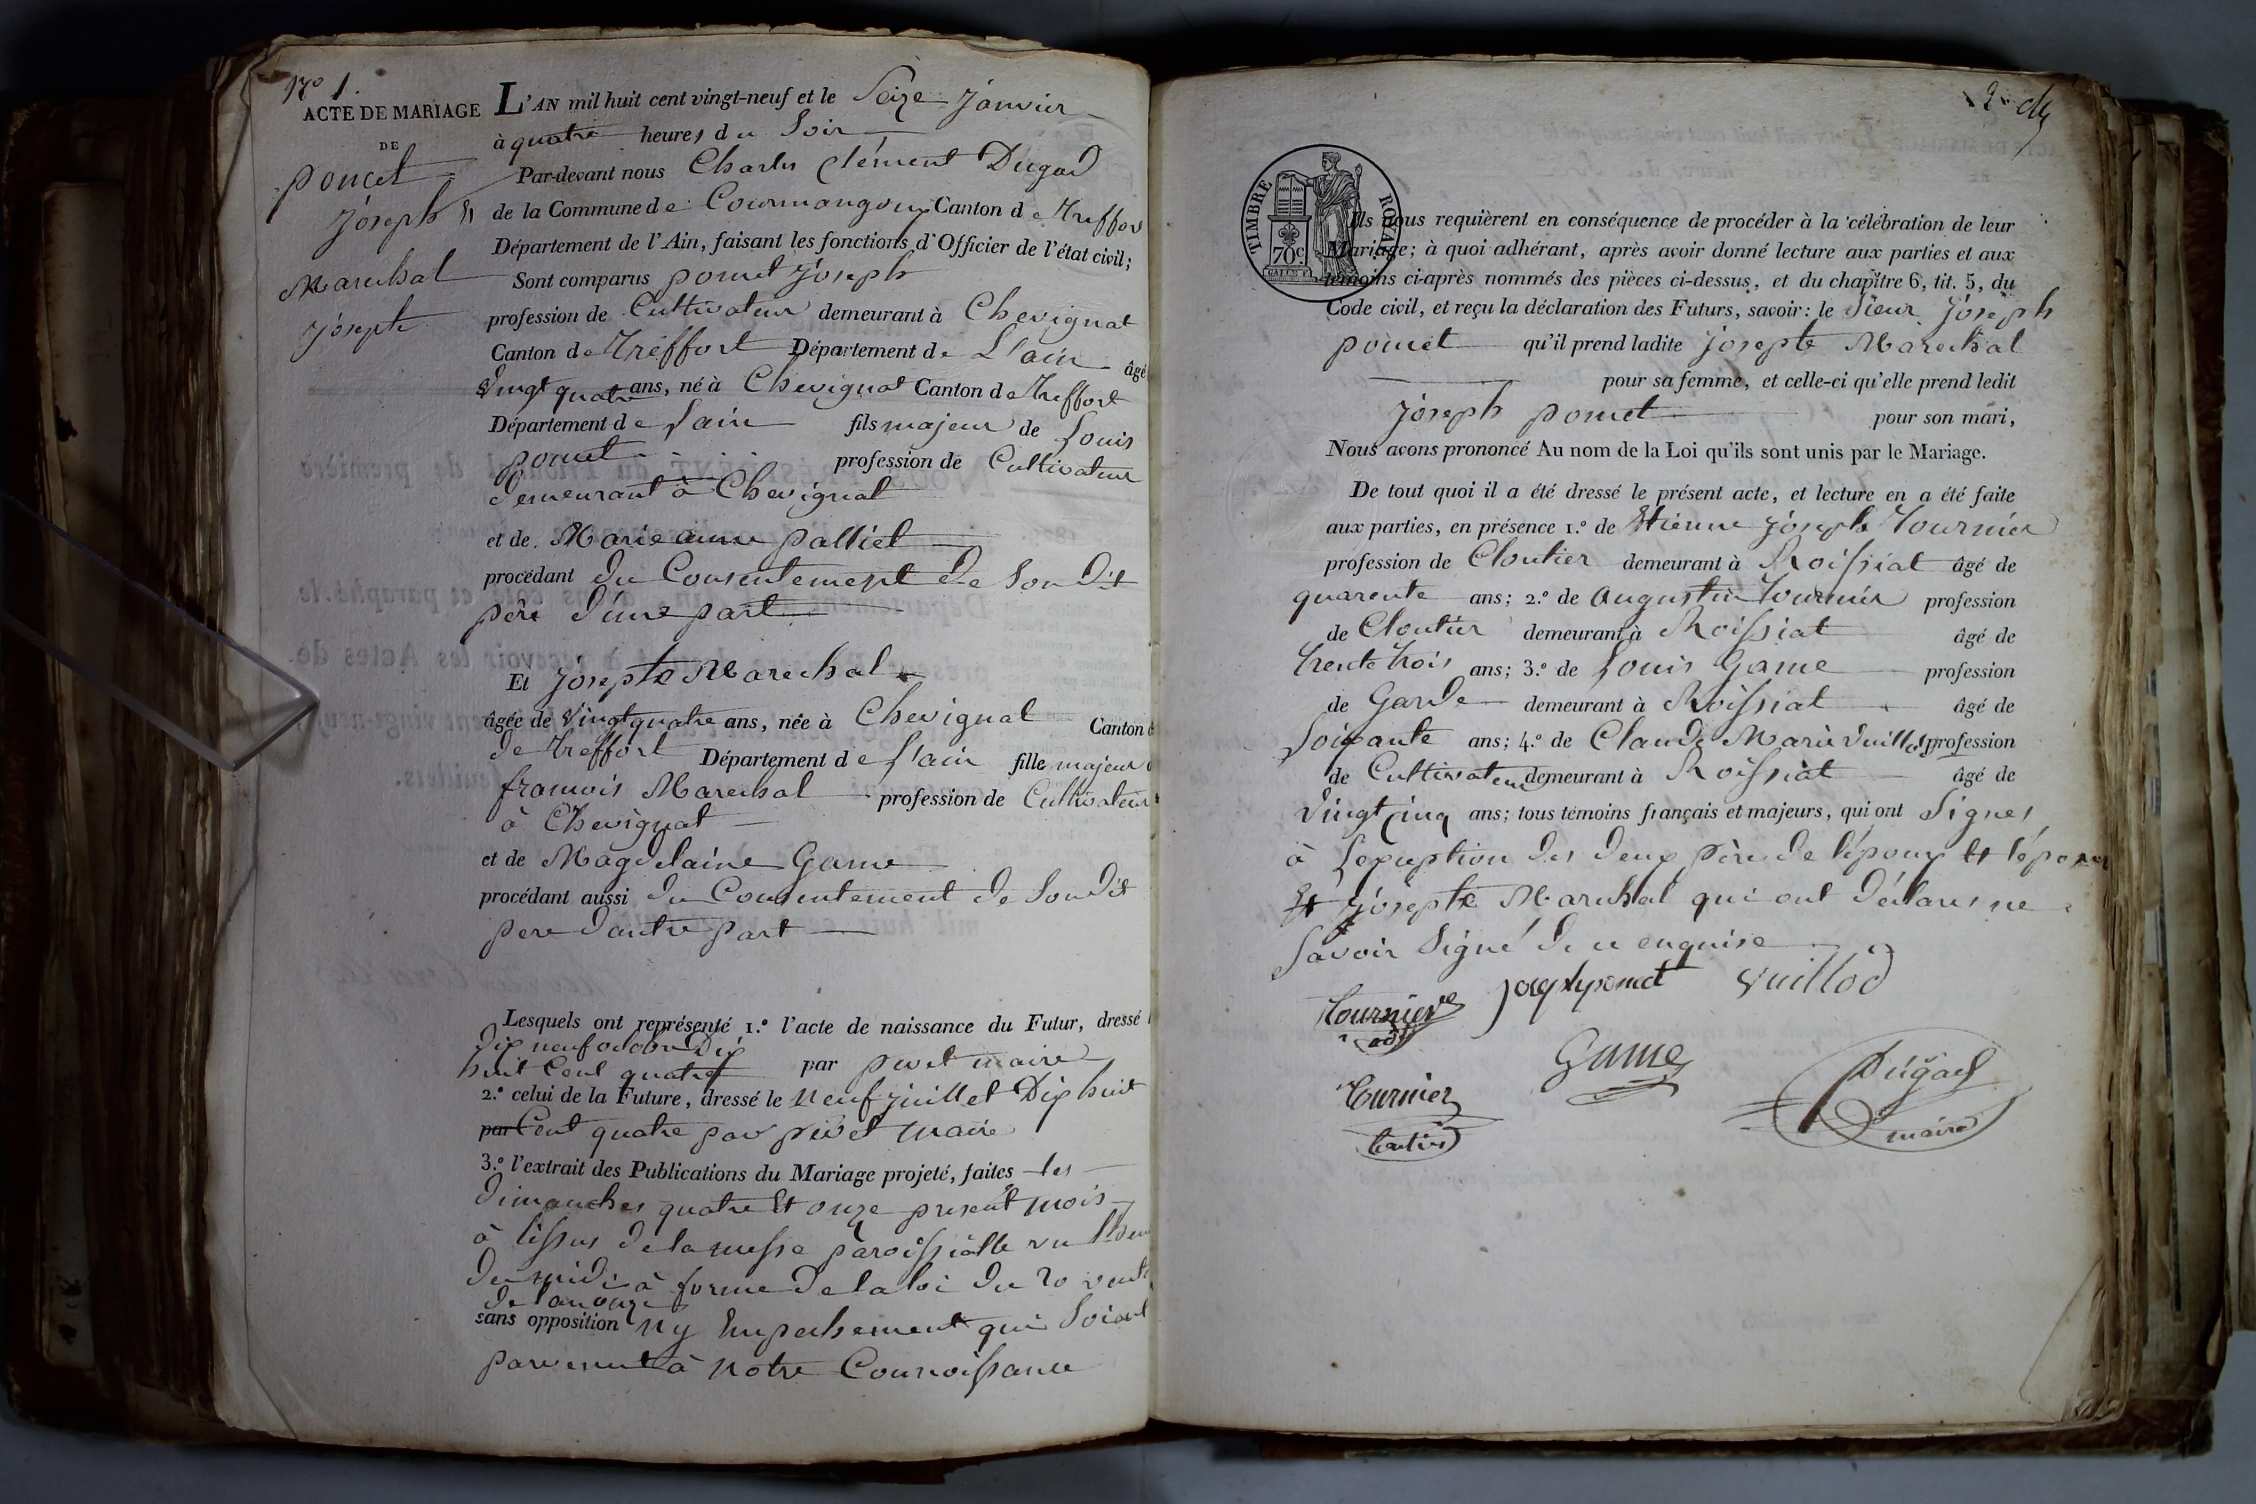 N.º 1.
ACTE DE MARIAGE
DE
poncet
joseph &
Marechal
josepte
L'AN mil huit cent vingt-neuf et le Seize janvier
à quatre heures du Soir
Par-devant nous Charles Clément Dugad
de la Commune de Courmangoux Canton de treffort
Département de l'Ain, faisant les fonctions d'Officier de l'état civil;
Sont comparus poncet joseph
profession de Cultivateur demeurant à Chevignat
Canton de treffort Département de L'ain âgé
vingt quatre ans, né à Chevignat Canton de treffort
Département de Lain fils majeur de Louis
poncet profession de Cultivateur
demeurant à Chevignat
et de Marie anne palliet
procédant du Consentement de Son dit
père d'une part
Et josepte Marechal
âgée de vingt quatre ans, née à Chevignat Canton
de treffort Département de l'ain fille majeur
francois Marechal profession de Cultivateur
à Chevignat
et de Magdelaine Game
procédant aussi du Consentement de Son dit
pere d'autre part
Lesquels ont représenté 1.º l'acte de naissance du Futur, dressé
dix neuf octobre dix
huit Cent quatre par pivet maire
2.º celui de la Future, dressé le neuf juillet Dix huit
par Cent quatre par pivet maire
3.º l'extrait des Publications du Mariage projeté, faites les
dimanches quatre et onze present mois
à lissus de la messe paroissialle
du midi à forme de la loi du 20
de l'an onze
sans opposition ny Empechement qui Soient
parvenut à notre Connoissance
TIMBRE ROYAL
70c
Ils nous requièrent en conséquence de procéder à la célébration de leur
Mariage; à quoi adhérant, après avoir donné lecture aux parties et aux
témoins ci-après nommés des pièces ci-dessus, et du chapître 6, tit. 5, du
Code civil, et reçu la déclaration des Futurs, savoir: le Sieur joseph
poncet qu'il prend ladite josepte Marechal
pour sa femme, et celle-ci qu'elle prend ledit
joseph poncet pour son mari,
Nous avons prononcé Au nom de la Loi qu'ils sont unis par le Mariage.
De tout quoi il a été dressé le présent acte, et lecture en a été faite
aux parties, en présence 1.º de Etienne joseph tournier
profession de Cloutier demeurant à Roissiat âgé de
quarente ans; 2.º de augustin tournier profession
de Cloutier demeurant à Roissiat âgé de
trente trois ans; 3.º de Louis Game profession
de Garde demeurant à Roissiat âgé de
Soixante ans; 4.º de Claude Marie vuillod profession
de Cultivateur demeurant à Roissiat âgé de
vingt cinq ans; tous témoins français et majeurs, qui ont Signes
à Lexception des deux père de l'époux et l'épouse
et josepte Marechal qui ont déclarés ne
Savoir Signé de ce enquise
tournier joseph poncet vuillod
Game
turnier
Dugad
maire